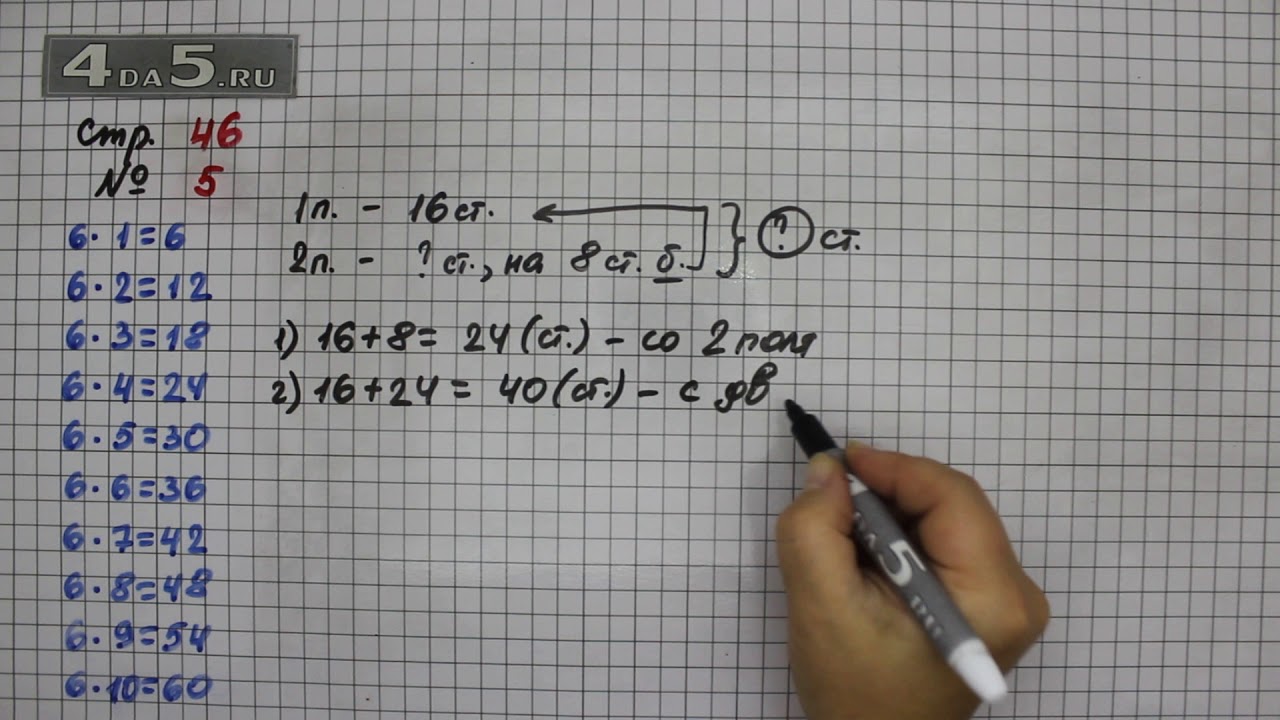 4DA5.RU
Стр. 46
№ 5
6·1=6
6·2=12
6·3=18
6·4=24
6·5=30
6·6=36
6·7=42
6·8=48
6·9=54
6·10=60
1п. - 16 ст.
2п. - ? ст., на 8 ст. б. } ? ст.
1) 16+8= 24 (ст.) - со 2 поля
2) 16+24 = 40 (ст.) - с дв